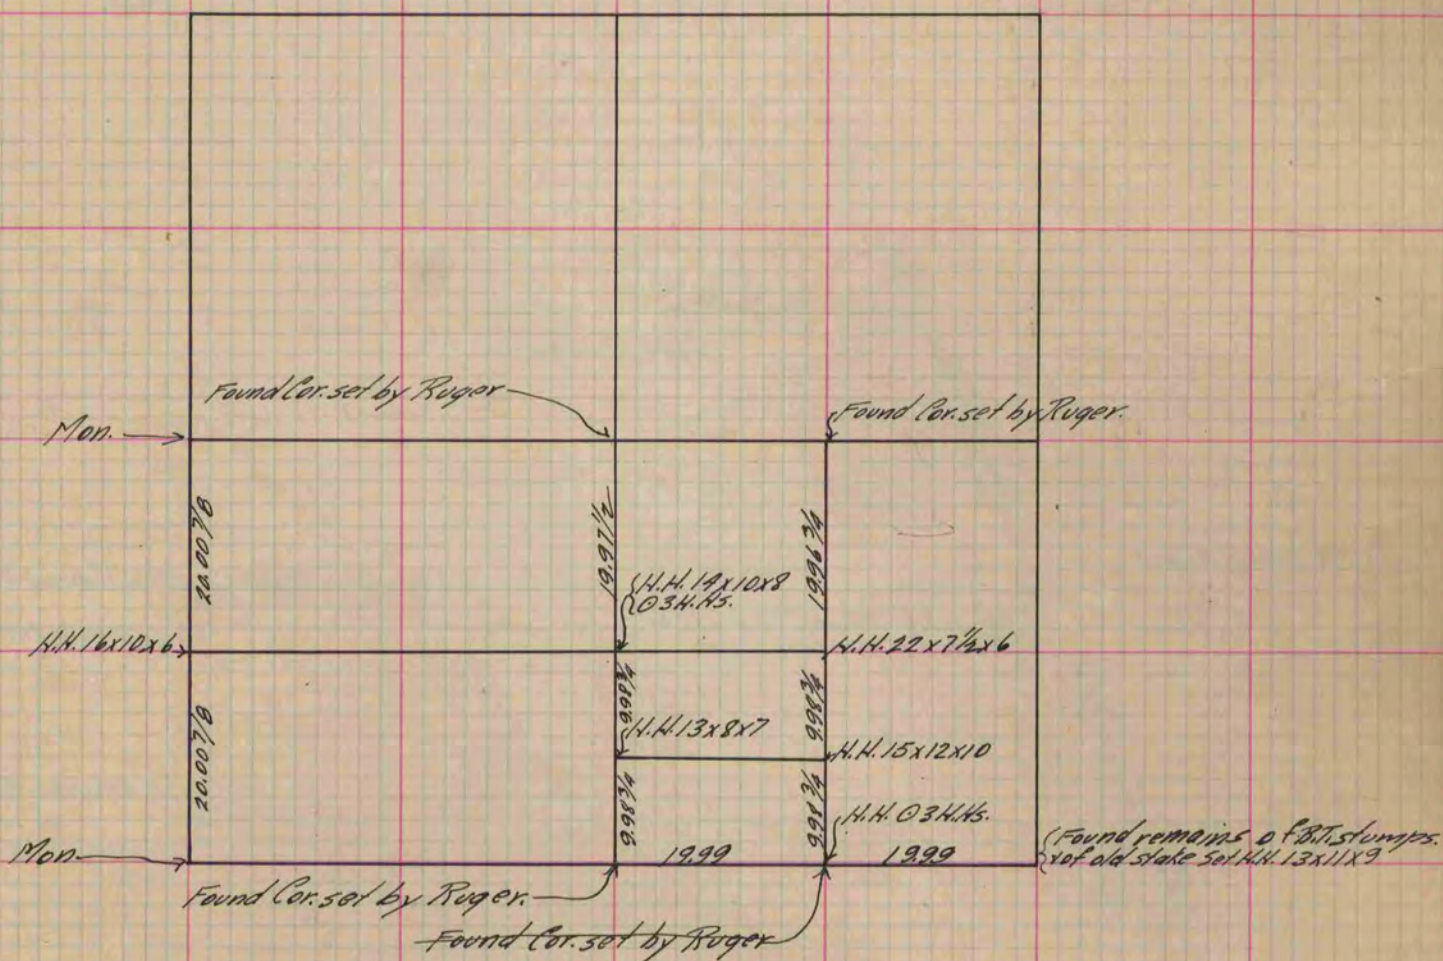 Found Cor. set by Ruger
Found Cor. set by Ruger.
Mon.
20.00 7/8
19.97 1/2
19.96 3/4
H.H. 14x10x8
⊙ 3 H.Hs.
H.H. 16x10x6
H.H. 22x7 1/2x6
20.00 7/8
9.98 3/4
9.98 3/4
H.H. 13x8x7
H.H. 15x12x10
9.98 3/4
9.98 3/4
H.H. ⊙ 3 H.Hs.
Mon.
19.99
19.99
Found remains of B.T. stumps.
& of old stake Set H.H. 13x11x9
Found Cor. set by Ruger.
Found Cor. set by Ruger